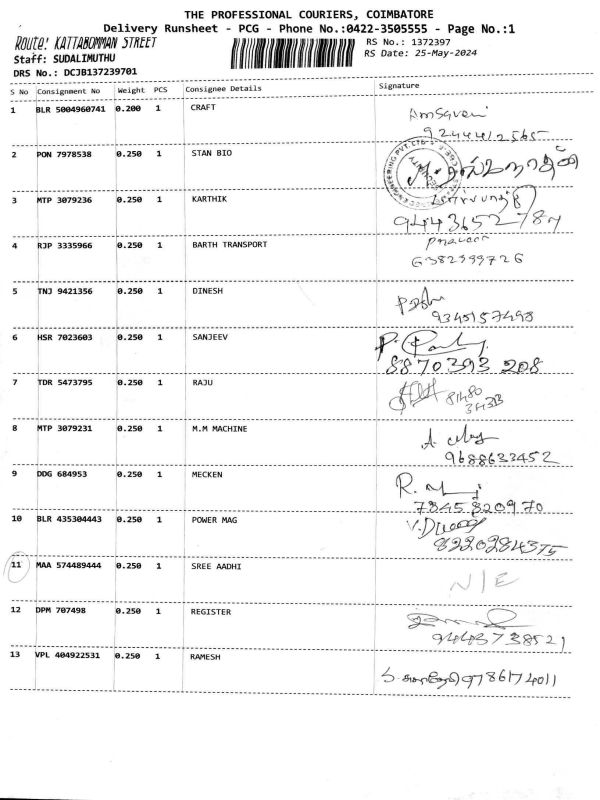 THE PROFESSIONAL COURIERS, COIMBATORE
Delivery Runsheet - PCG - Phone No.:0422-3505555 - Page No.:1
Route: KATTABOMMAN STREET
RS No.: 1372397
Staff: SUDALIMUTHU
RS Date: 25-May-2024
DRS No.: DCJB137239701
S No Consignment No Weight PCS Consignee Details Signature
1 BLR 5004960741 0.200 1 CRAFT
9244412565
2 PON 7978538 0.250 1 STAN BIO
3 MTP 3079236 0.250 1 KARTHIK
4 RJP 3335966 0.250 1 BARTH TRANSPORT
6382599726
5 TNJ 9421356 0.250 1 DINESH
9345157498
6 HSR 7023603 0.250 1 SANJEEV
8870393 208
7 TDR 5473795 0.250 1 RAJU
8 MTP 3079231 0.250 1 M.M MACHINE
9688633452
9 DDG 684953 0.250 1 MECKEN
7845820970
10 BLR 435304443 0.250 1 POWER MAG
8220284375
11 MAA 574489444 0.250 1 SREE AADHI N/E
12 DPM 707498 0.250 1 REGISTER
94443738521
13 VPL 404922531 0.250 1 RAMESH
9786174011